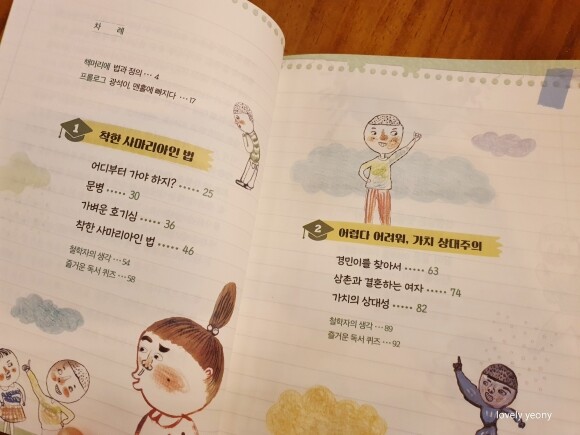 차 례
책머리에 법과 정의 ··· 4
프롤로그 광석이, 맨홀에 빠지다 ··· 17
1 착한 사마리아인 법
어디부터 가야 하지? ····· 25
문병 ····· 30
가벼운 호기심 ····· 36
착한 사마리아인 법 ····· 46
철학자의 생각 ··· 54
즐거운 독서 퀴즈 ··· 58
2 어렵다 어려워, 가치 상대주의
경민이를 찾아서 ····· 63
삼촌과 결혼하는 여자 ····· 74
가치의 상대성 ····· 82
철학자의 생각 ··· 89
즐거운 독서 퀴즈 ··· 92
lovely yeony